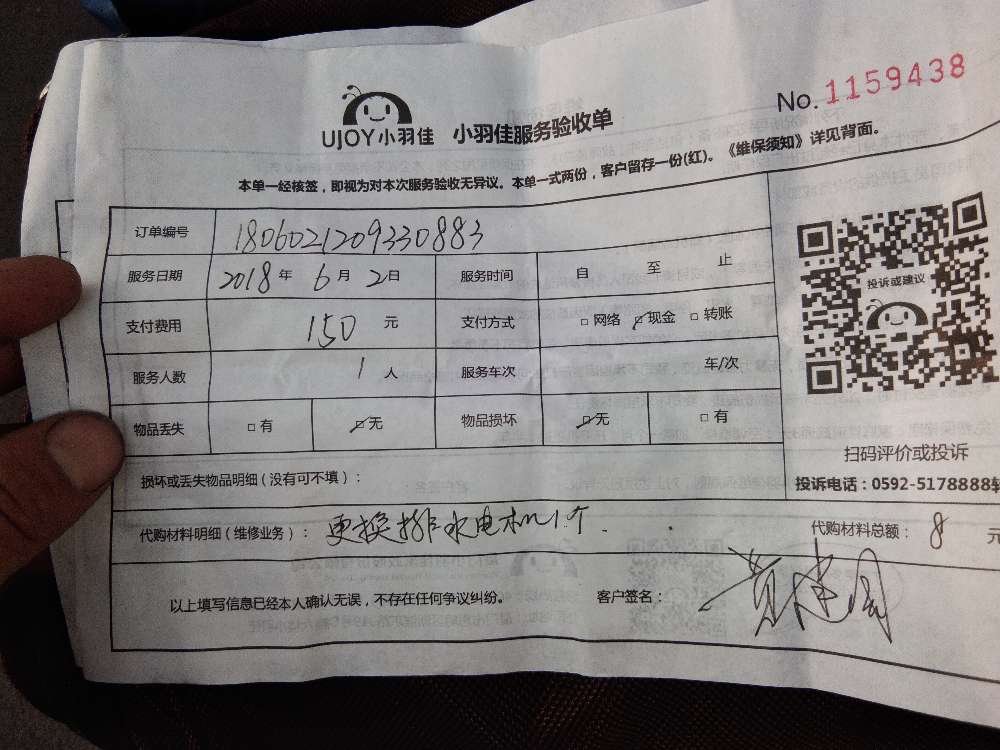 No. 1159438
UJOY小羽佳 小羽佳服务验收单
本单一经核签，即视为对本次服务验收无异议。本单一式两份，客户留存一份(红)。《维保须知》详见背面。
订单编号 1806021209330883
服务日期 2018年6月2日 服务时间 自 至 止
支付费用 150 元 支付方式 □网络 ☑现金 □转账
服务人数 1人 服务车次 车/次
物品丢失 □有 ☑无 物品损坏 ☑无 □有
投诉或建议
扫码评价或投诉
投诉电话：0592-5178888转
损坏或丢失物品明细（没有可不填）：
代购材料明细（维修业务）：更换排水电机1个. 代购材料总额：8 元
以上填写信息已经本人确认无误，不存在任何争议纠纷。 客户签名：